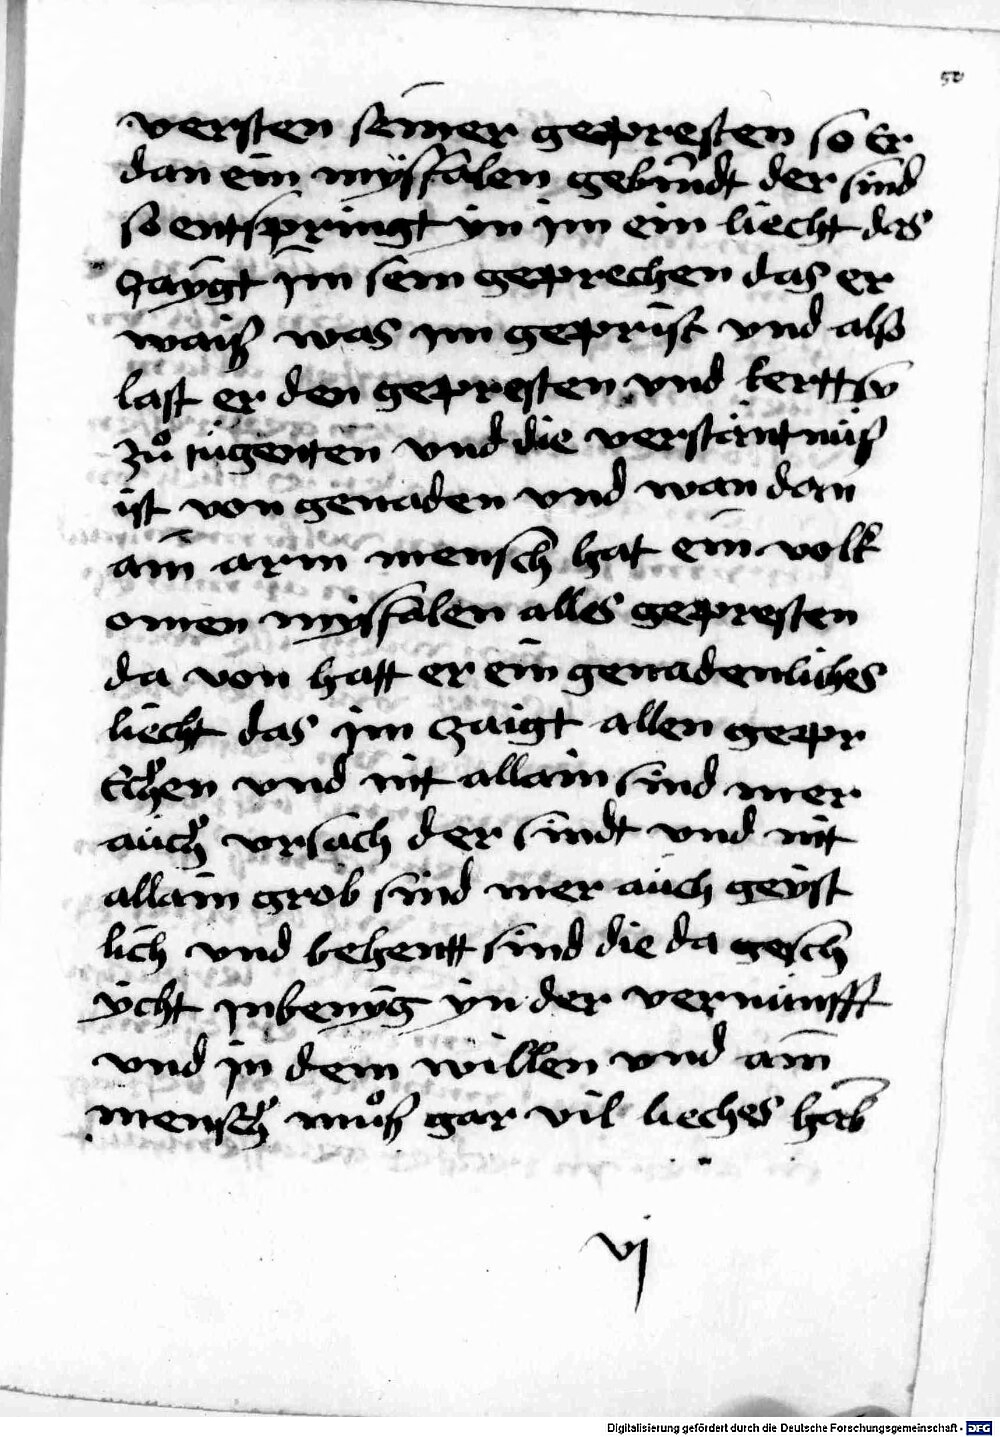 50
versten seiner gepresten so er
dan ein mÿsfalen gebindt der sind
so entspringt ÿn im ein liecht das
zaÿgt im sein geprechen das er
waiß was im geprist vnd also
last er den gepresten vnd kertt sy
zů tugenten vnd die verstäntnüß
ist von genaden vnd wan dan
ain arm mensch hat ein volk
omen mÿsfalen alles gepresten
da von hatt er ein genadenliches
liecht das im zaigt allen gepr
echen vnd nit allain sind mer
auch vrsach der sindt vnd nit
allain grob sind mer auch geÿst
lich vnd behentt sind die da gesch
ÿcht inbenÿg ÿn der vernunfft
vnd in dem willen vnd ain
mensch můß gar vil lieches hab
vj
Digitalisierung gefördert durch die Deutsche Forschungsgemeinschaft - DFG